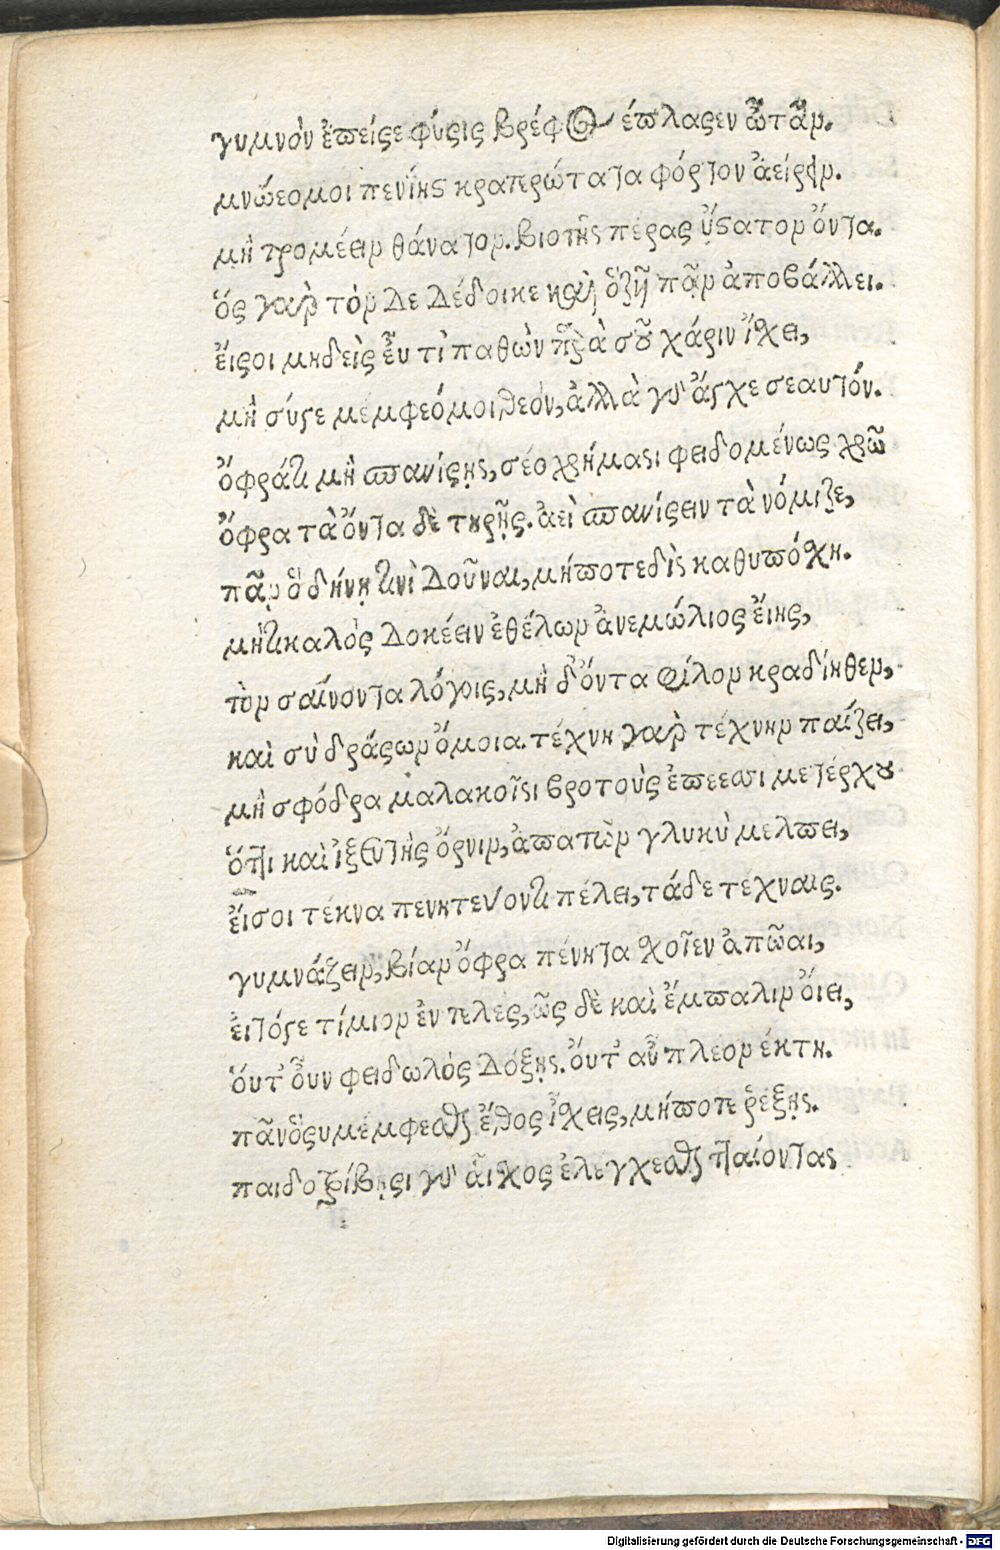 γυμνὸν ἐπείσε φύσις βρέφος ἔπλασεν ὦ τᾶν.
μνώεό μοι πενίης κρατερώτατα φόρτον ἀείρειν.
μὴ τρομέειν θάνατον. βιοτῆς πέρας ὕστατον ὄντα.
ὅς γὰρ τὸν δε δέδοικε καὶ ὃ ζῇ πᾶν ἀποβάλλει.
εἴ σοι μηδεὶς εὖ τὶ παθὼν παρὰ σοῦ χάριν ἴσχει,
μὴ σύγε μέμφεό μοι θεὸν, ἀλλὰ γ' ἄσχε σεαυτόν.
ὄφρά τι μὴ σπανίσῃς, σέο χρήμασι φειδομένως χρῶ
ὄφρα τὰ ὄντα δὲ τηρῇς. ἀεὶ σπανίσειν τὰ νόμιζε,
πᾶν ὃ δήνῃ τινὶ δοῦναι, μήποτε δὶς καθυπόσχῃ.
μή τι καλὸς δοκέειν ἐθέλων ἀνεμώλιος εἴης,
τὸν σαίνοντα λόγοις, μὴ δ' ὄντα φίλον κραδίηθεν,
καὶ σὺ δράσων ὅμοια. τέχνη γὰρ τέχνην παίζει,
μὴ σφόδρα μαλακοῖσι βροτοὺς ἐπέεσσι μετέρχου
ὅττι καὶ ἰξευτὴς ὄρνιν, ἀπατῶν γλυκὺ μέλπει,
εἴ σοι τέκνα πενητεύοντι πέλει, τάδε τέχναις.
γυμνάζειν, βίαν ὄφρα πένητα σχοῖεν ἀπῶσαι,
εἰ τόγε τίμιον ἐντελὲς, ὣς δὲ καὶ ἔμπαλιν οἴει,
οὔτ' οὖν φειδωλὸς δόξῃς. οὔτ' αὖ πλέον ἔκτῃ.
πᾶν ὃ συ μέμφεσθαι ἔθος ἴσχεις, μήποτε ῥέξῃς.
παιδοτρίβῃσι γ' αἶσχος ἐλέγχεσθαι πταίοντας
Digitalisierung gefördert durch die Deutsche Forschungsgemeinschaft - DFG